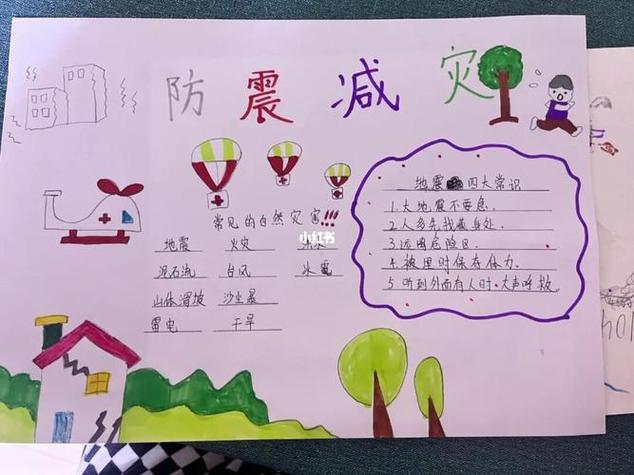 防震减灾
常见的自然灾害!!!
地震 火灾
泥石流 台风 冰雹
山体滑坡 沙尘暴
雷电 干旱
小红书
地震 四大常识
1.大地震不要急.
2.人多先找藏身处.
3.远离危险区.
4.被埋时保存体力.
5.听到外面有人时.大声呼救.